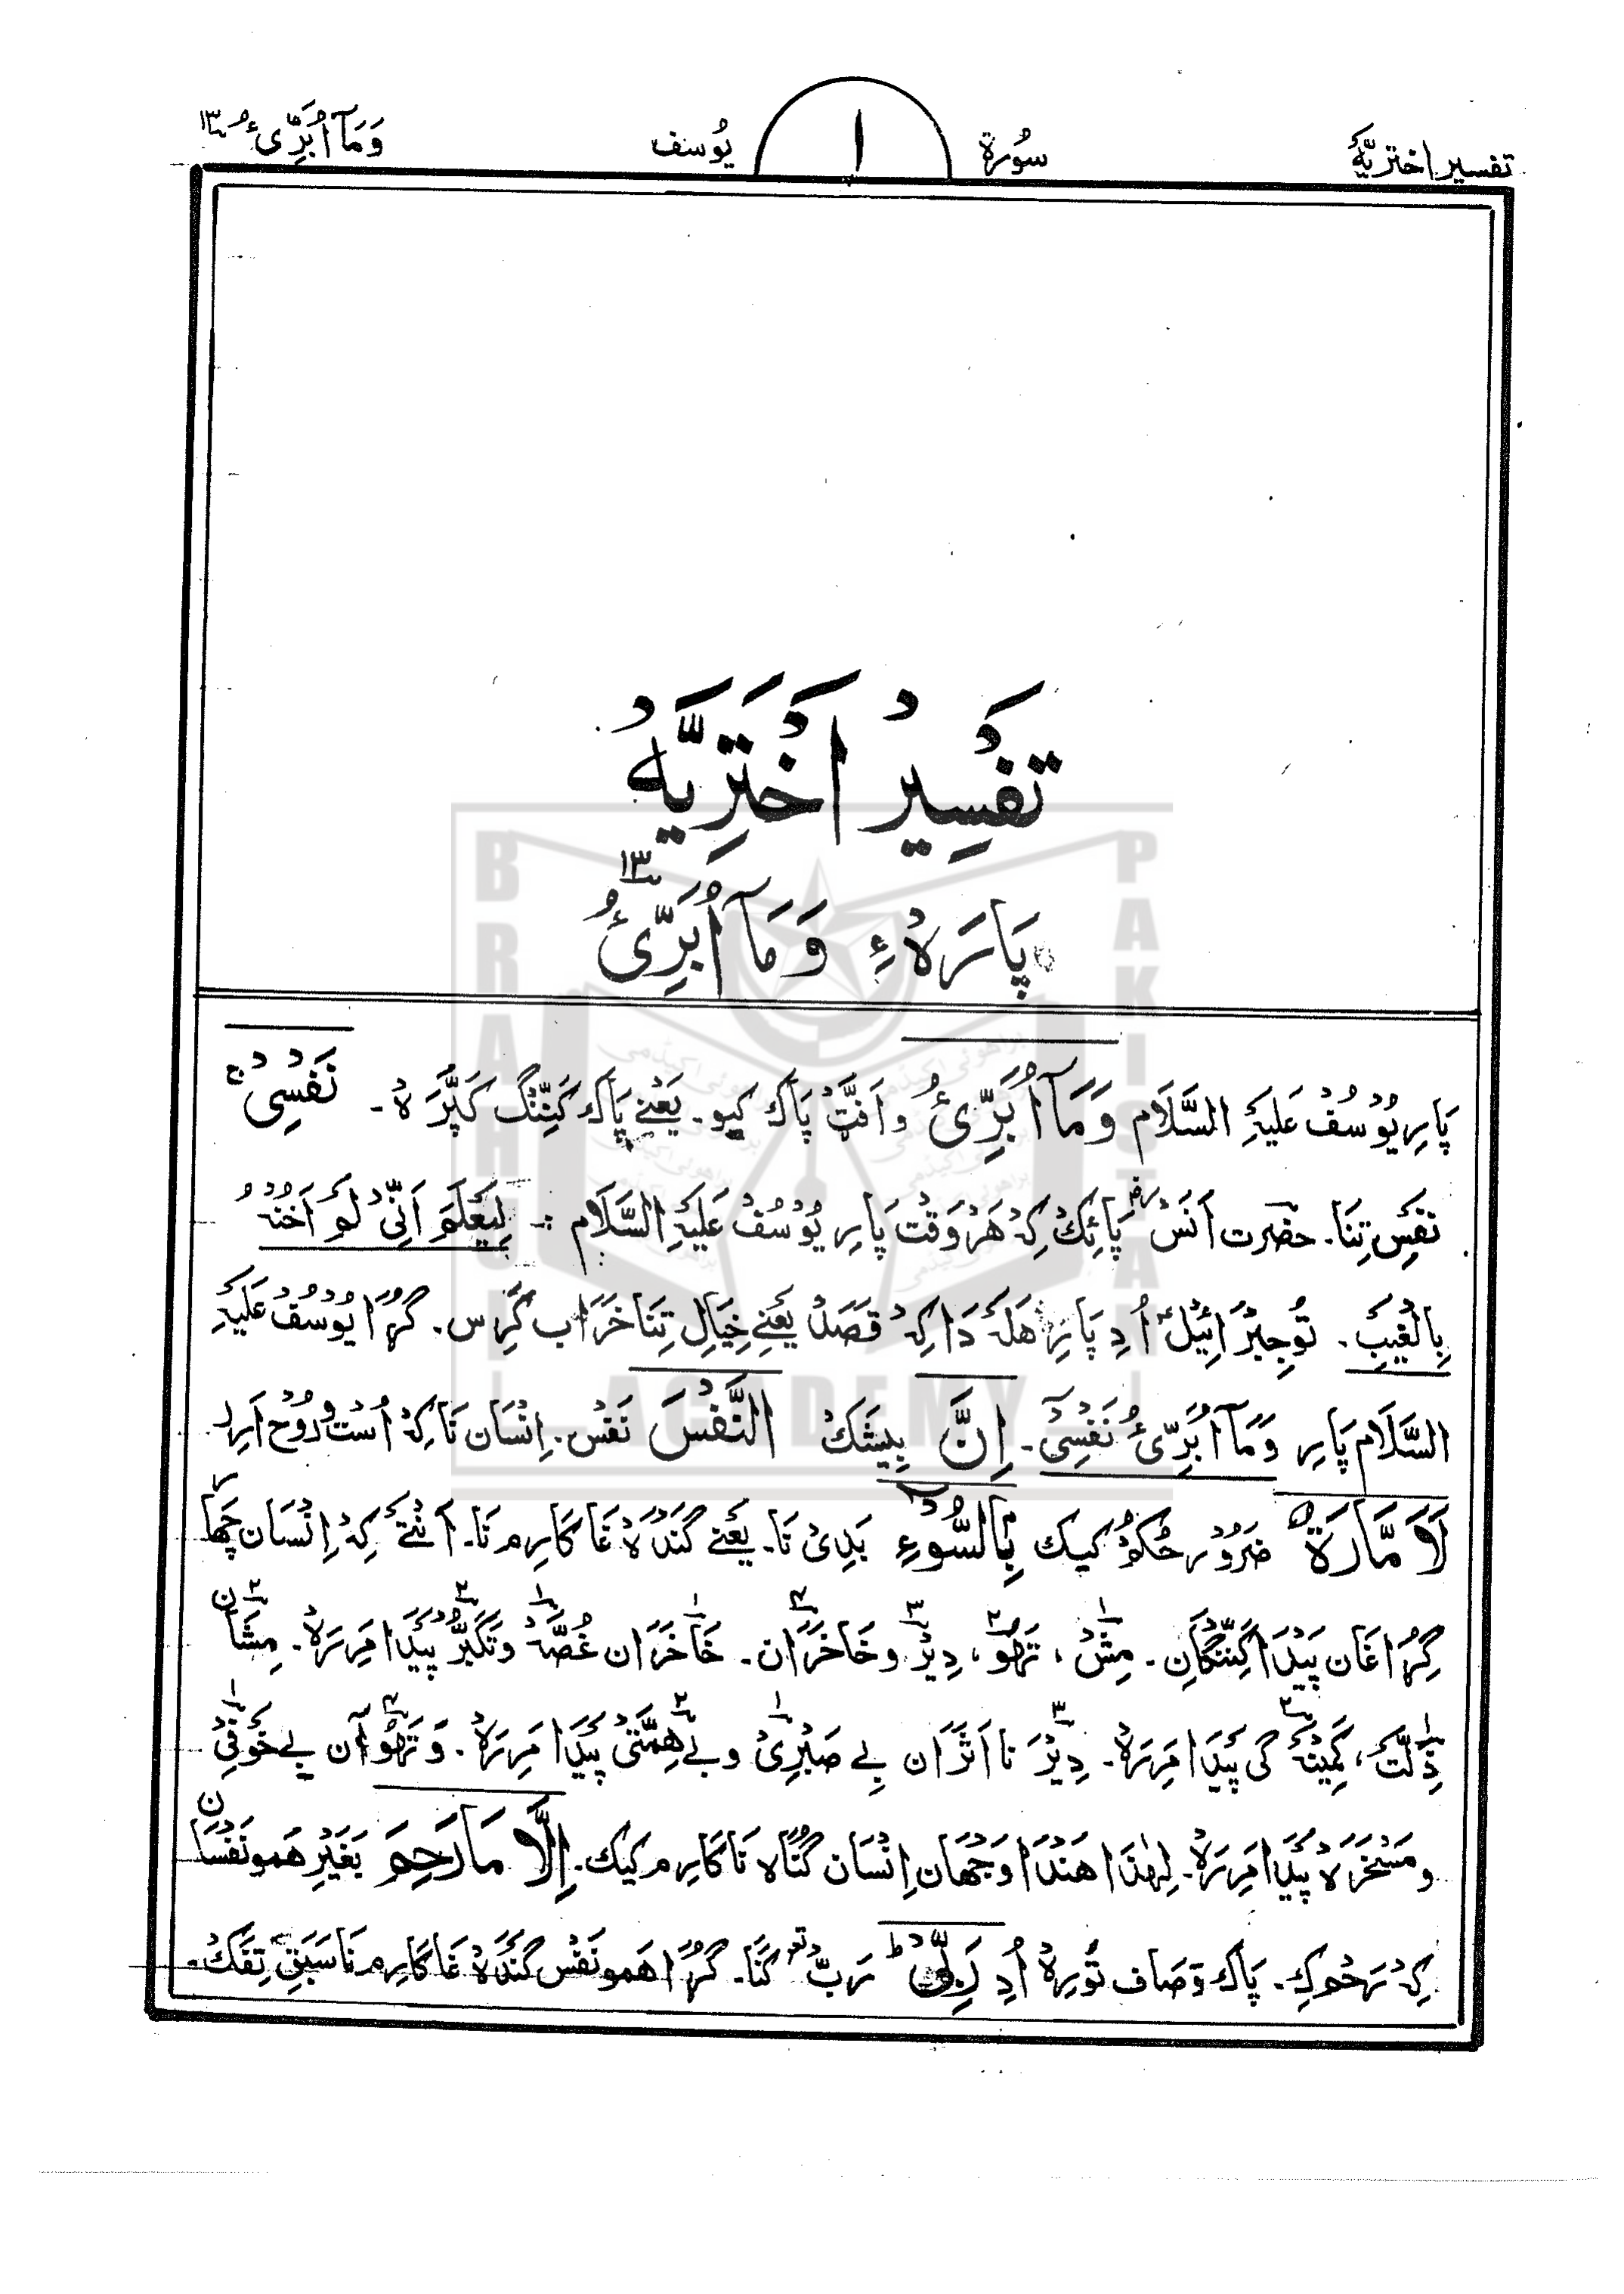 تفسیر اختریَّهُ سُورۃ ۱ یُوسف وَمَآ اُبَرِّیُٔ ۱۳
تَفْسِیْرُ اَخْتَرِیَّهْ
پَارَہْءِ وَمَآ اُبَرِّیُٔ ۱۳
پَارِ یُوْسُفْ عَلَیْهِ السَّلَام وَمَآ اُبَرِّیُٔ و اَفَتْ پَاک کیو۔ یَعْنِے پَاک کَنِّنْگ کَپَّرَہْ۔ نَفْسِیْ ج
نَفَسِ تِنَا۔ حضرت اَنَسْ رض پَائِکْ کِهْ هَرْوَقْت پَارِ یُوْسُفْ عَلَیْهِ السَّلَام :۔ لِیَعْلَمَ اَنِّیْ لَمْ اَخُنْهُ
بِالْغَیْبِ۔ تُو جِبْرَائِیْل اُدِ پَارِ هَلَهْ دَا کِهْ قَصَدْ یَعْنِے خِیَالِ تِنَا خَرَاب کَرِس۔ گُڑَا یُوْسُفْ عَلَیْهِ
السَّلَام پَارِ وَمَآ اُبَرِّیُٔ نَفْسِیْ۔ اِنَّ بِیشَکْ النَّفْسَ نَفْس۔ اِنْسَان نَا کِهْ اُسْت و رُوْح اَرِد
لَاَمَّارَۃٌ ضَرُوْر حُکَمْ کیک بِالسُّوْٓءِ بَدِیْ نَا۔ یَعْنِے گَنْدَہْ غَا کَارِم نَا۔ اَنْتَے کِهْ اِنْسَان چَهار
گِڑَا غَان پَیْدَا کَنِّنْگَانِ۔ مِشْ ۱، تَهْو ۲، دِیْر ۳ و خَاخَرَان ۴۔ خَاخَرَان غُصَّهْ ۱ وتَکَبُّرْ ۲ پَیْدَا مَرِرَہْ۔ مِشَان
ذِلَّتْ ۱، کَمِیْنَهْ ۲ گی پَیْدَا مَرِرَہْ۔ دِیْر ۳ نَا اَثْرَان بِے صَبْرِیْ ۱ و بے هِمَّتِیْ ۲ پَیْدَا مَرِرَہْ۔ وَ تَهْوْ آن ۴ بے خَوْفِیْ ۱
و مَسْخَرَہْ پَیْدَا مَرِرَہْ۔ لِهٰذَا هَنْدَا وَجْهَان اِنْسَان گُنَاہ نَا کَارِم کیک۔ اِلَّا مَا رَحِمَ بَغَیْرِ هَمو نَفْسَان
کِهْ رَحْوکِ۔ پَاک وَصَاف تُوْرِہْ اُدِ رَبِّیْ ط رَبّْ کَنَا۔ گُڑَا هَمو نَفْس گَنْدَہْ غَا کَارِم نَا سَبَقِ تِفَّکْ۔